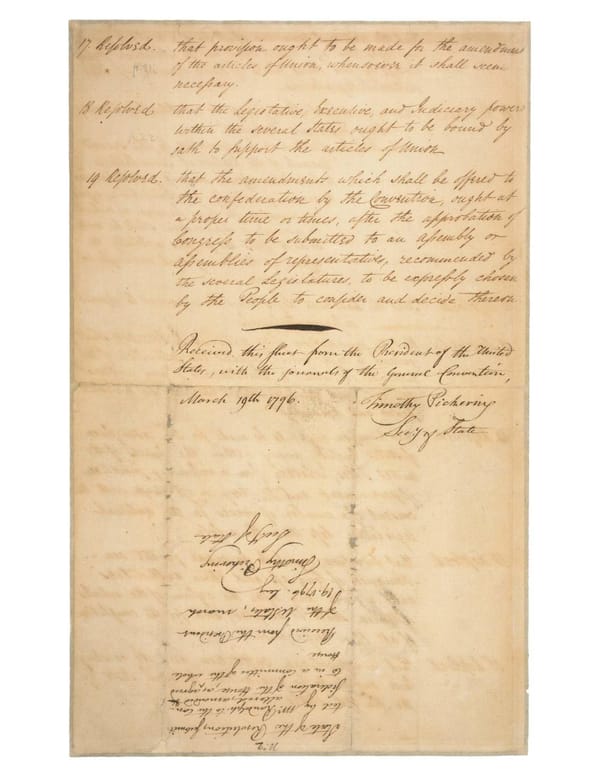 17 Resolved. that provision ought to be made for the amendment
of the articles of Union, whensoever it shall seem
necessary.
18 Resolved that the Legislative, Executive, and Judiciary powers
within the several States ought to be bound by
oath to support the articles of Union
19 Resolved. that the amendments which shall be offered to
the confederation by the Convention, ought at
a proper time or times, after the approbation of
Congress to be submitted to an assembly or
assemblies of representatives, recommended by
the several Legislatures, to be expressly chosen
by the People to consider and decide thereon.
Received this sheet from the President of the United
States, with the journals of the General Convention,
March 19th 1796.
Timothy Pickering
Secy of State
State of the Resolutions submit
ted by Mr Randolph to the Con
sideration of the House, as
altered, amended &
agreed
to in a Committee of the whole
House.
Received from the President
of the U States, March
19. 1796. by
Timothy Pickering
Secy of State